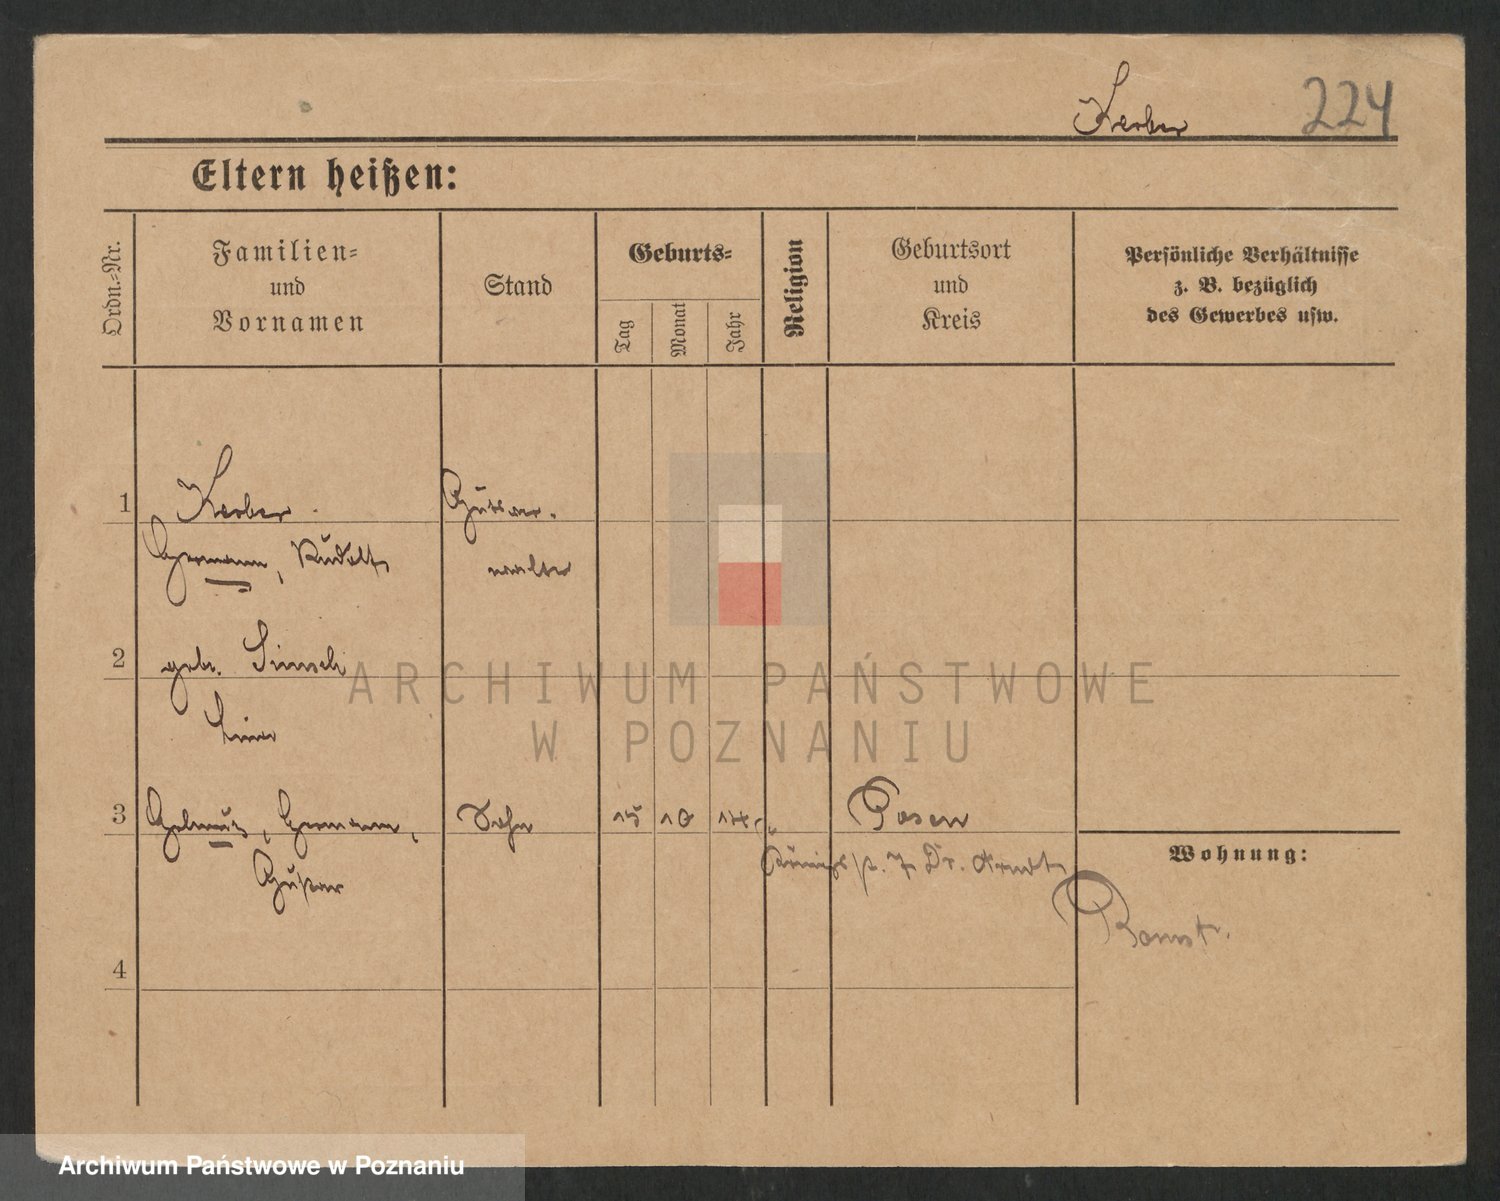 Kerber 224
Eltern heißen:
Ordn.-Nr.
Familien-
und
Vornamen
Stand
Geburts-
Tag
Monat
Jahr
Religion
Geburtsort
und
Kreis
Persönliche Verhältnisse
z. B. bezüglich
des Gewerbes usw.
1 Kerber Gutsver-
Hermann, Rudolf walter
2 geb.
3 Helmut, Hermann, Sohn 15 10 14 Posen
Gustav
Königspl. 7 Dr. Arndt
Wohnung:
Bomst.
4
ARCHIWUM PAŃSTWOWE
W POZNANIU
Archiwum Państwowe w Poznaniu